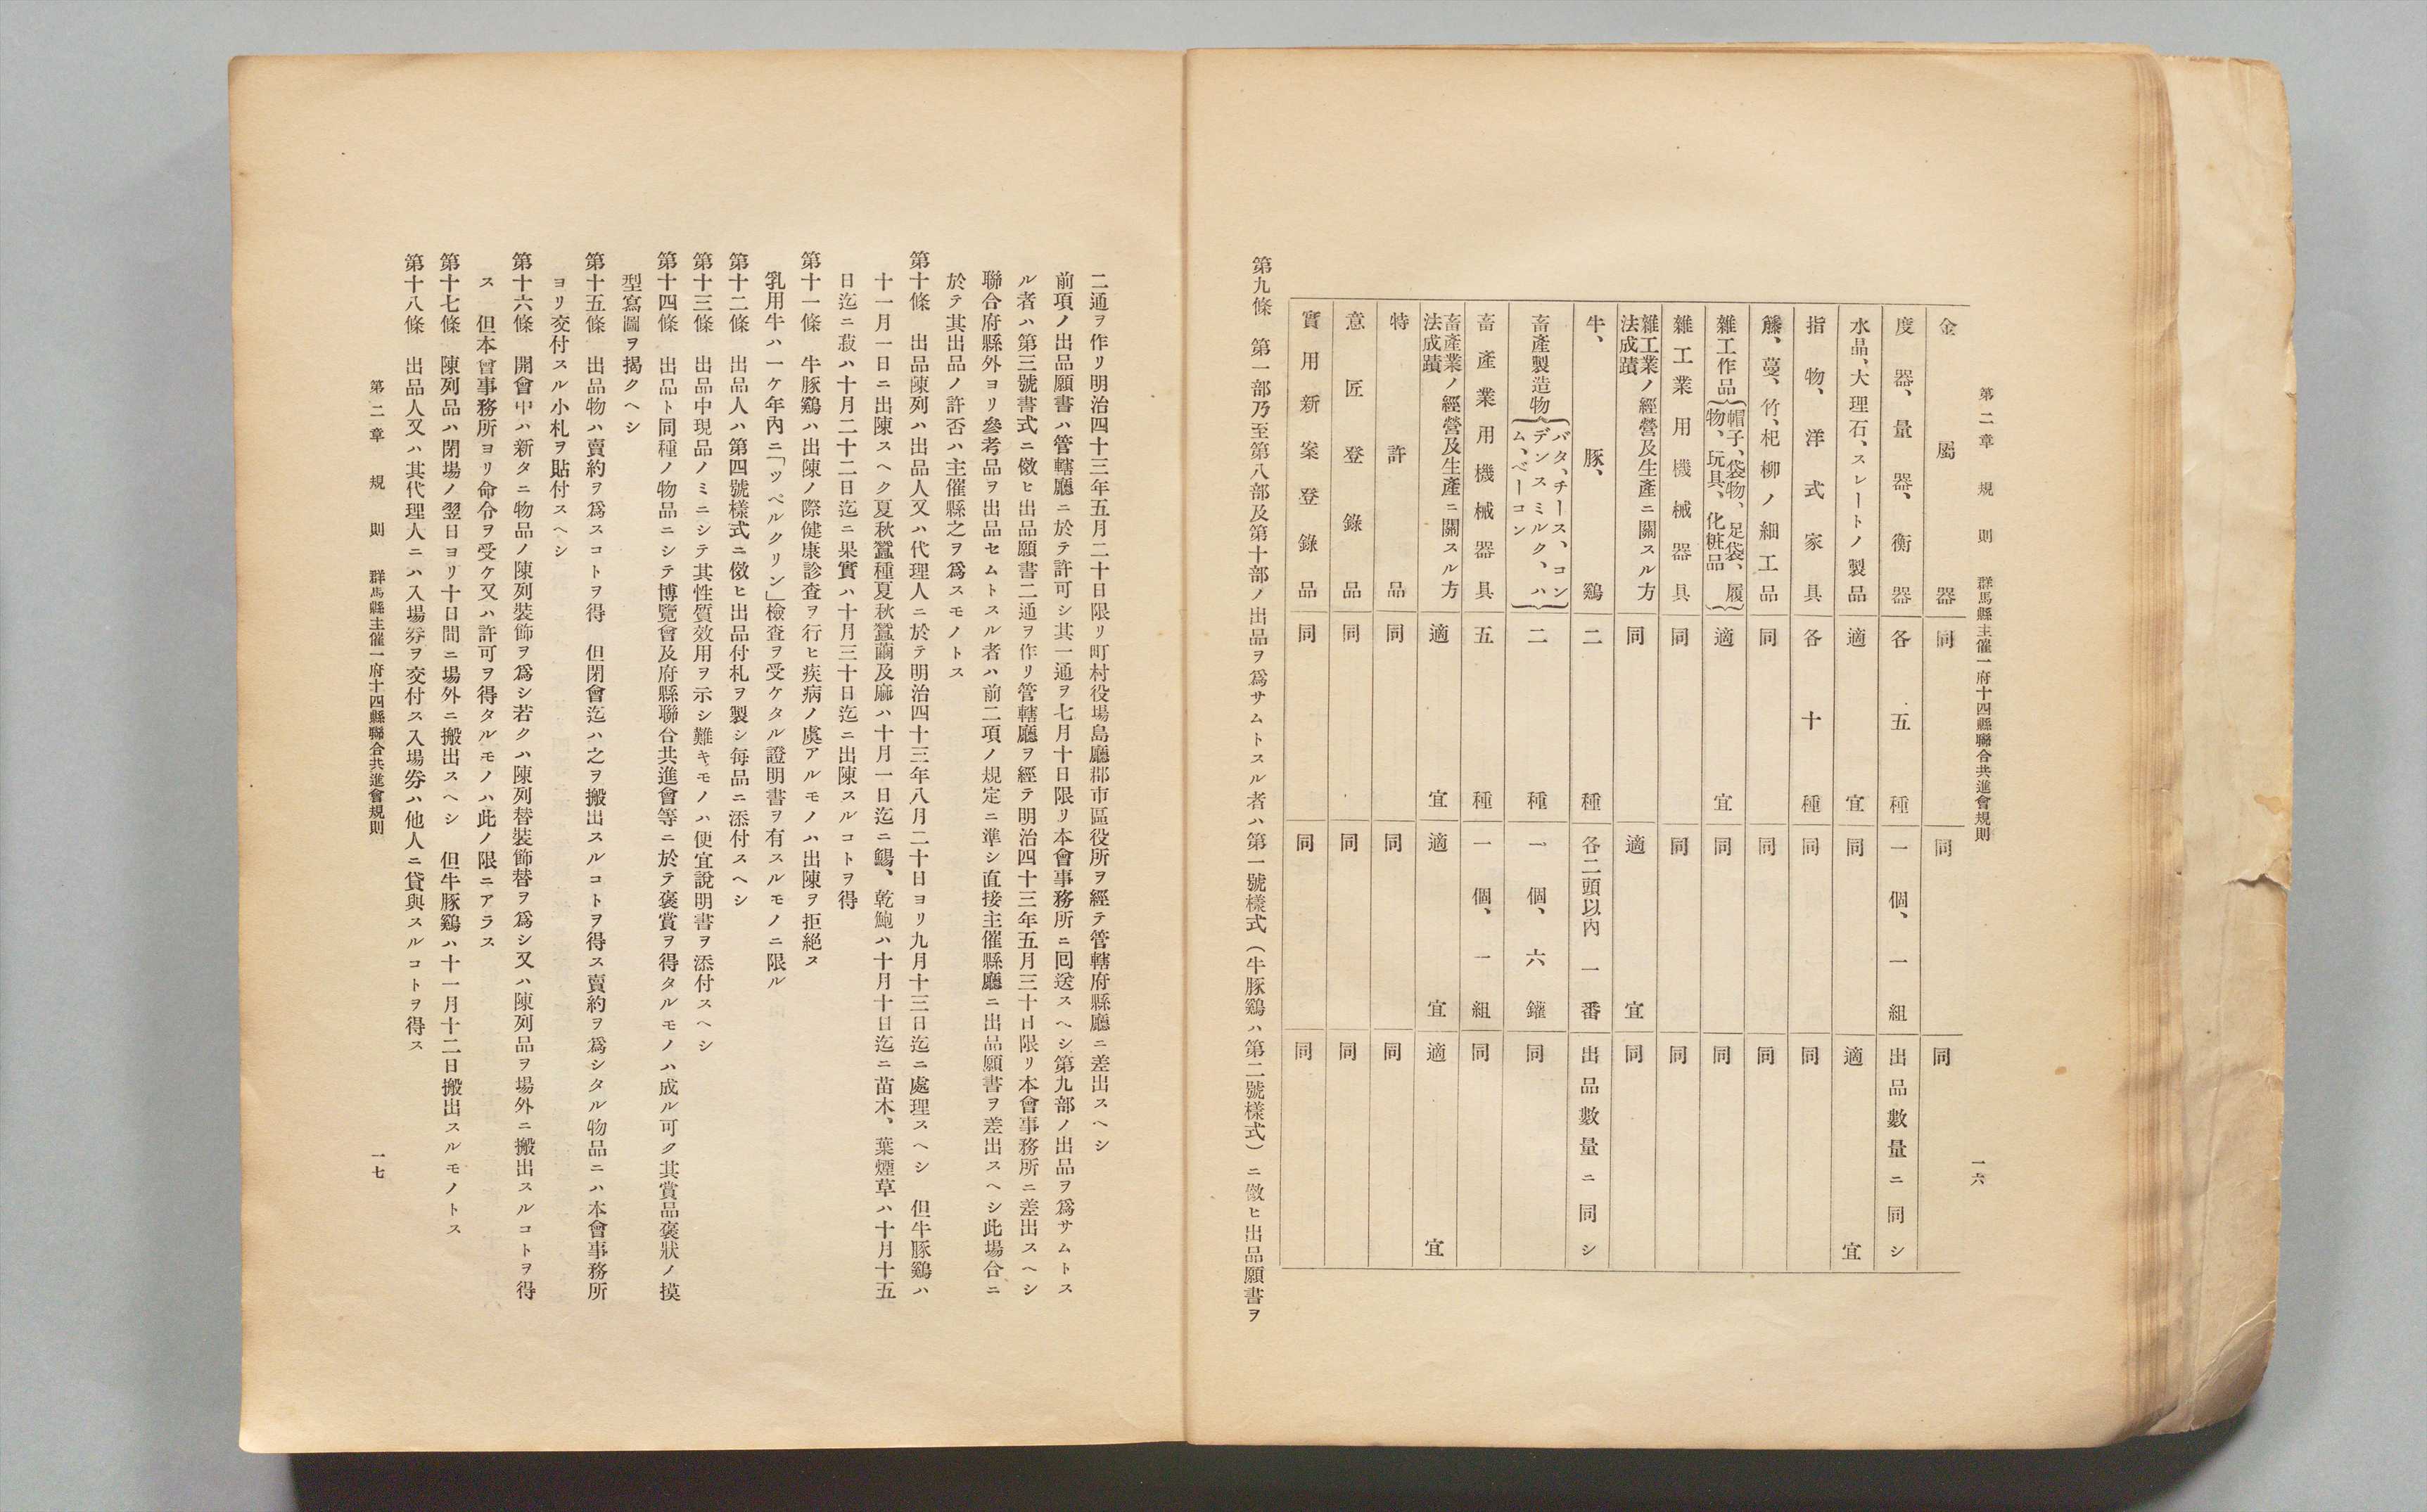 第二章　規　則　群馬縣主催一府十四縣聯合共進會規則　一六
金屬器　同　同　同
度器、量器、衡器　各五種　一個、一組　出品數量ニ同シ
水晶、大理石、スレートノ製品　適宜　同　適宜
指物、洋式家具　各十種　同　同
籐、蔓、竹、杞柳ノ細工品　同　同　同
雜工作品｛帽子、袋物、足袋、履物、玩具、化粧品｝　適宜　同　同
雜工業用機械器具　同　同　同
雜工業ノ經營及生產ニ關スル方法成蹟　同　適宜　同
牛、豚、鷄　二種　各二頭以內　一番　出品數量ニ同シ
畜產製造物｛バタ、チース、コンデンスミルク、ハム、ベーコン｝　二種　一個、六鑵　同
畜產業用機械器具　五種　一個、一組　同
畜產業ノ經營及生產ニ關スル方法成蹟　適宜　適宜　適宜
特許品　同　同　同
意匠登錄品　同　同　同
實用新案登錄品　同　同　同
第九條　第一部乃至第八部及第十部ノ出品ヲ爲サムトスル者ハ第一號樣式（牛豚鷄ハ第二號樣式）ニ倣ヒ出品願書ヲ
二通ヲ作リ明治四十三年五月二十日限リ町村役場島廳郡市區役所ヲ經テ管轄府縣廳ニ差出スヘシ
前項ノ出品願書ハ管轄廳ニ於テ許可シ其一通ヲ七月十日限リ本會事務所ニ回送スヘシ第九部ノ出品ヲ爲サムトス
ル者ハ第三號書式ニ倣ヒ出品願書二通ヲ作リ管轄廳ヲ經テ明治四十三年五月三十日限リ本會事務所ニ差出スヘシ
聯合府縣外ヨリ參考品ヲ出品セムトスル者ハ前二項ノ規定ニ準シ直接主催縣廳ニ出品願書ヲ差出スヘシ此場合ニ
於テ其出品ノ許否ハ主催縣之ヲ爲スモノトス
第十條　出品陳列ハ出品人又ハ代理人ニ於テ明治四十三年八月二十日ヨリ九月十三日迄ニ處理スヘシ　但牛豚鷄ハ
十一月一日ニ出陳スヘク夏秋蠶種夏秋蠶繭及麻ハ十月一日迄ニ鯣、乾鮑ハ十月十日迄ニ苗木、葉煙草ハ十月十五
日迄ニ菽ハ十月二十二日迄ニ果實ハ十月三十日迄ニ出陳スルコトヲ得
第十一條　牛豚鷄ハ出陳ノ際健康診査ヲ行ヒ疾病ノ虞アルモノハ出陳ヲ拒絕ス
乳用牛ハ一ケ年內ニ「ツベルクリン」檢査ヲ受ケタル證明書ヲ有スルモノニ限ル
第十二條　出品人ハ第四號樣式ニ倣ヒ出品付札ヲ製シ每品ニ添付スヘシ
第十三條　出品中現品ノミニシテ其性質效用ヲ示シ難キモノハ便宜說明書ヲ添付スヘシ
第十四條　出品ト同種ノ物品ニシテ博覽會及府縣聯合共進會等ニ於テ褒賞ヲ得タルモノハ成ル可ク其賞品褒狀ノ摸
型寫圖ヲ揭クヘシ
第十五條　出品物ハ賣約ヲ爲スコトヲ得　但閉會迄ハ之ヲ搬出スルコトヲ得ス賣約ヲ爲シタル物品ニハ本會事務所
ヨリ交付スル小札ヲ貼付スヘシ
第十六條　開會中ハ新タニ物品ノ陳列裝飾ヲ爲シ若クハ陳列替裝飾替ヲ爲シ又ハ陳列品ヲ場外ニ搬出スルコトヲ得
ス　但本會事務所ヨリ命令ヲ受ケ又ハ許可ヲ得タルモノハ此ノ限ニアラス
第十七條　陳列品ハ閉場ノ翌日ヨリ十日間ニ場外ニ搬出スヘシ　但牛豚鷄ハ十一月十二日搬出スルモノトス
第十八條　出品人又ハ其代理人ニハ入場券ヲ交付ス入場券ハ他人ニ貸與スルコトヲ得ス
第二章　規　則　群馬縣主催一府十四縣聯合共進會規則　一七